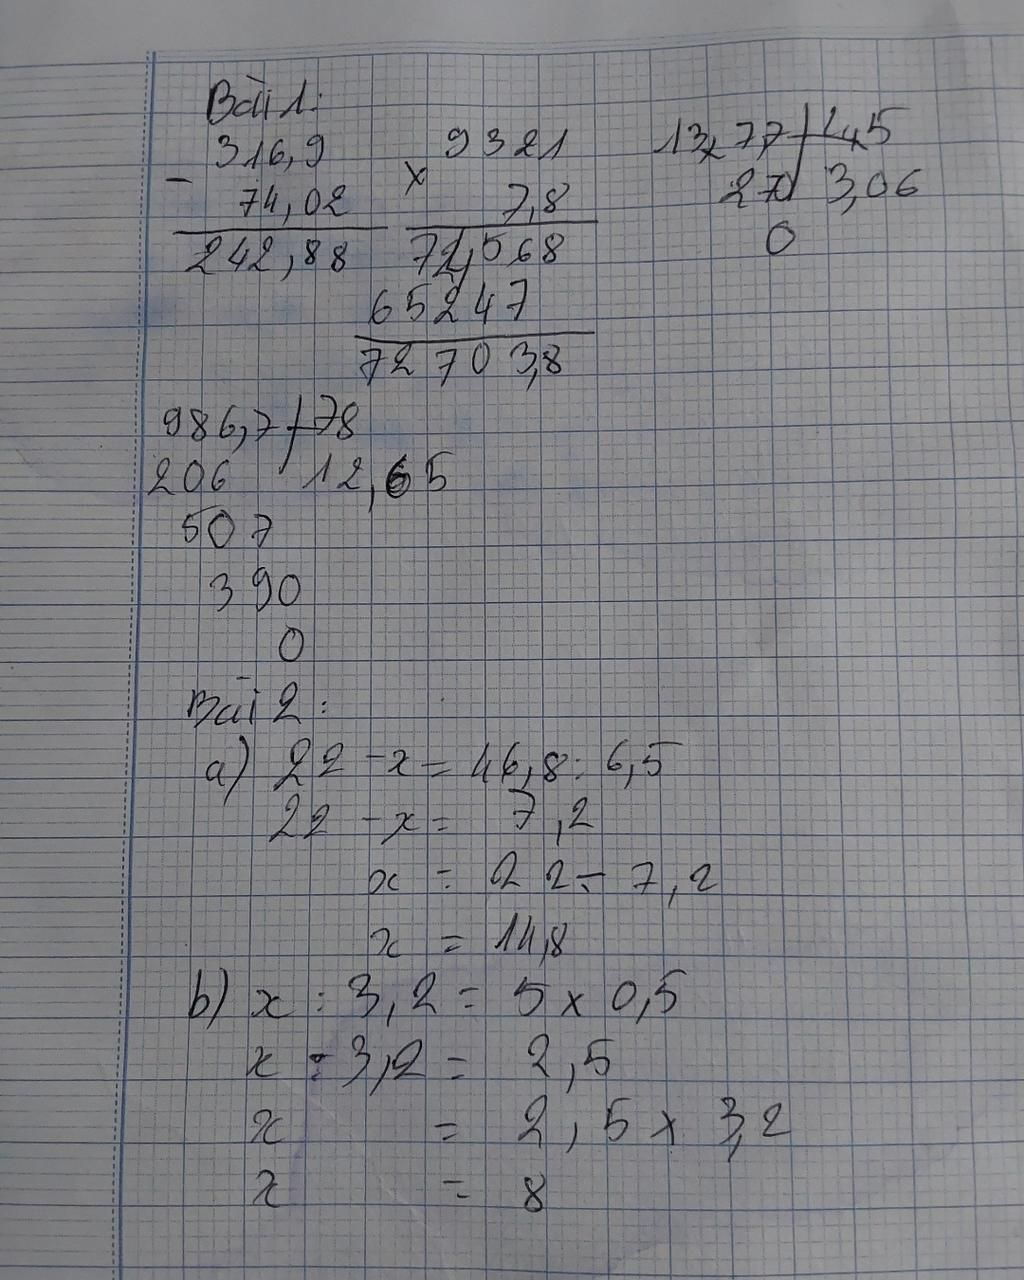 Bài 1:
316,9
-
74,02
242,88
9321
x
7,8
72,568
65247
72703,8
13,77 4,5
270 3,06
0
986,7 78
206 12,65
507
390
0
Bài 2:
a) 22 - x = 46,8 : 6,5
22 - x = 7,2
x = 22 - 7,2
x = 14,8
b) x : 3,2 = 5 x 0,5
x : 3,2 = 2,5
x = 2,5 x 3,2
x = 8